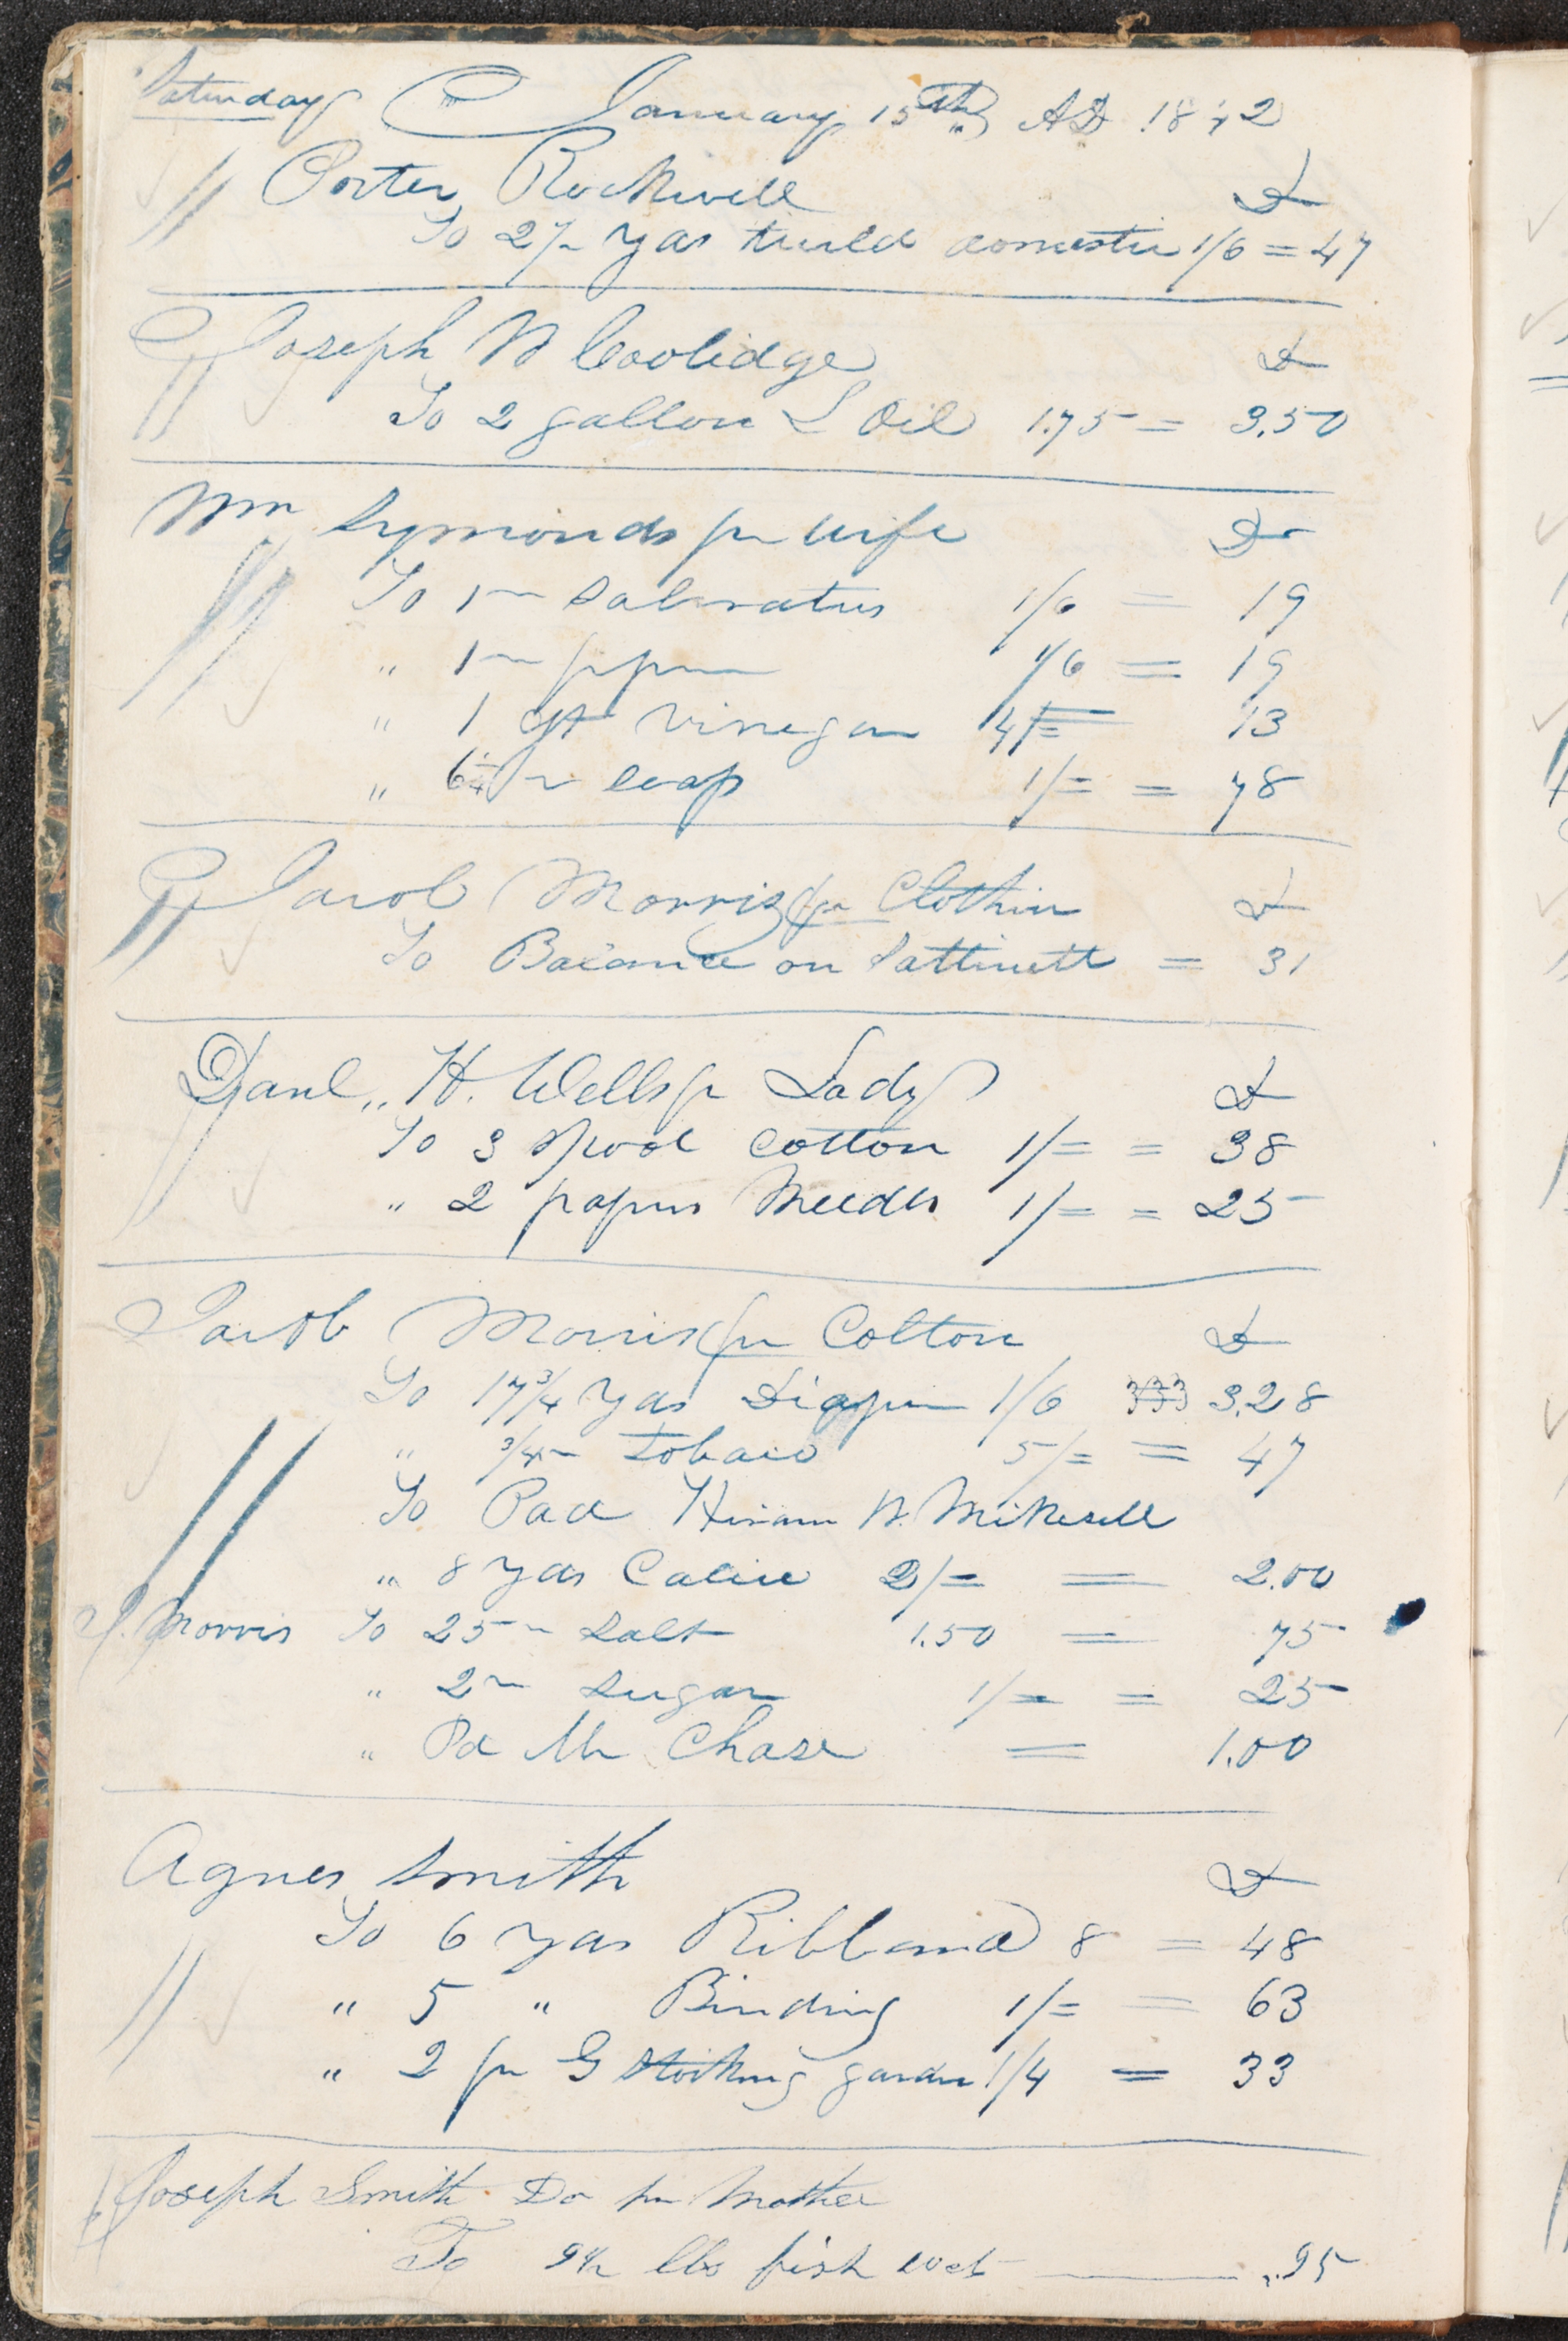 Saturday January 15th AD 1842
Porter Rockwell Dr
To 2½ yds twild domestic 1/6 = 47
Joseph W Coolidge Dr
To 2 gallon L Oil 1.75 = 3.50
Wm Symonds pr wife Dr
To 1 lb Saleratus 1/6 = 19
" 1 lb pepper 1/6 = 19
" 1 qt Vinegar 4/= 13
" 6¼ lb 1/= = 78
Jacob Morris pr Clothier Dr
To Balance on Sattinett = 31
Danl,, H. Wells pr Lady Dr
To 3 Spool Cotton 1/= = 38
" 2 papers Needles 1/= = 25
Jacob Morris pr Colton Dr
To 17¾ yds Diaper 1/6 333 3.28
" ¾ lb Tobacco 5/= = 47
To Paid Hiram N. Mikesell
" 8 yds Calico 2/= = 2.00
J. Morris To 25 lb Salt 1.50 = 75
" 2 lb Sugar 1/= = 25
" Pd Mr Chase = 1.00
Agnes Smith Dr
To 6 yds Ribband 8 = 48
" 5 " Binding 1/= = 63
" 2 pr G Stocking 1/4 = 33
Joseph Smith Dr pr Mother
To 9½ lbs fish wet .95